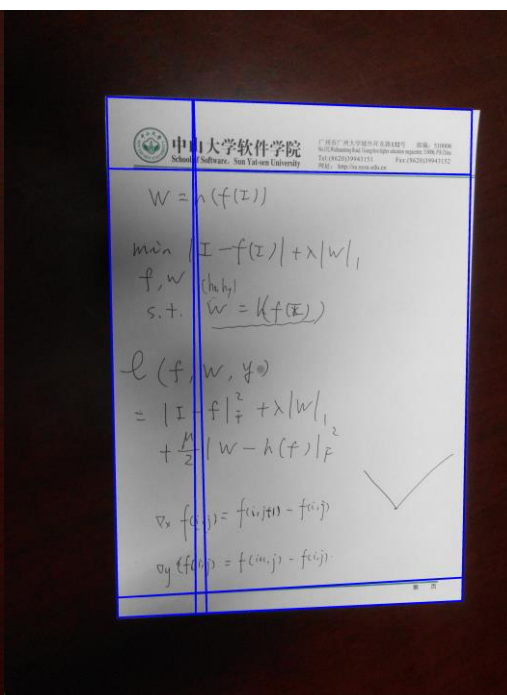 中山大学软件学院
School of Software, Sun Yat-sen University
Tel:(8620)39943151 Fax:(8620)39943152
W = h(f(I))
min |I-f(I)|+λ|W|₁
f,w (hx,hy)
s.t. W = h(f(I))
ℓ(f,W,y)
= |I-f|²F +λ|W|₁
+ μ/2 |W-h(f)|F²
∇x f(i,j) = f(i,j+1) - f(i,j)
∇y f(i,j) = f(i+1,j) - f(i,j).
第 页